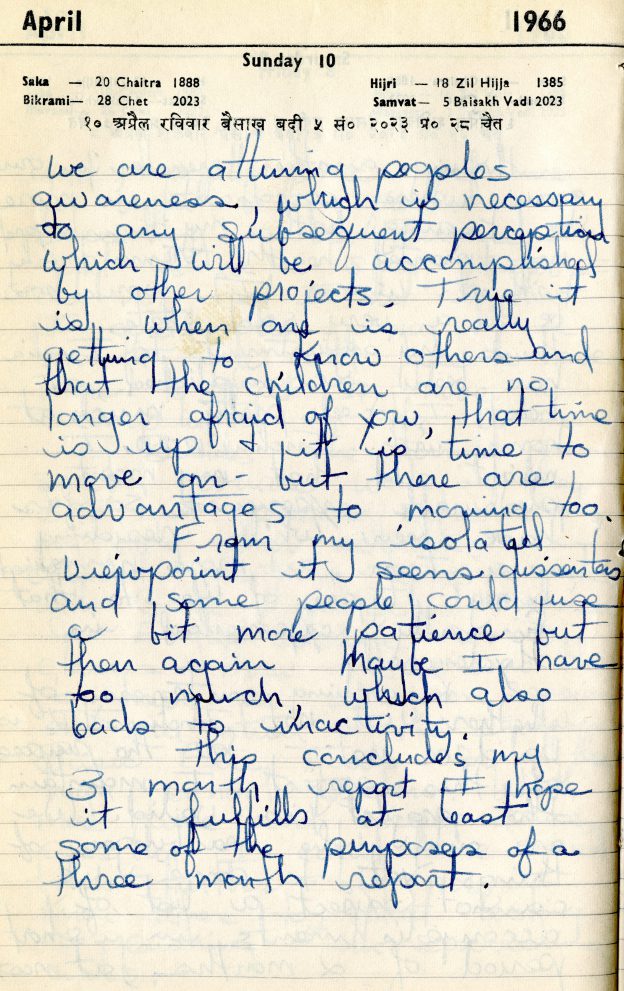 April 1966
Sunday 10
Saka — 20 Chaitra 1888 Hijri — 18 Zil Hijja 1385
Bikrami— 28 Chet 2023 Samvat— 5 Baisakh Vadi 2023
१० अप्रैल रविवार बैसाख बदी ५ सं० २०२३ प्र० २८ चैत
we are attuning peoples
awareness, which is necessary
to any subsequent perception
which will be accomplished
by other projects. True it
is when one is really
getting to know others and
that the children are no
longer afraid of you, that time
is up & it is time to
move on - but there are
advantages to moving too.
From my isolated
viewpoint it seems dissenters
and some people could use
a bit more patience but
then again maybe I have
too much, which also
leads to inactivity.
This concludes my
3 month report & I hope
it fulfills at least
some of the purposes of a
three month report.